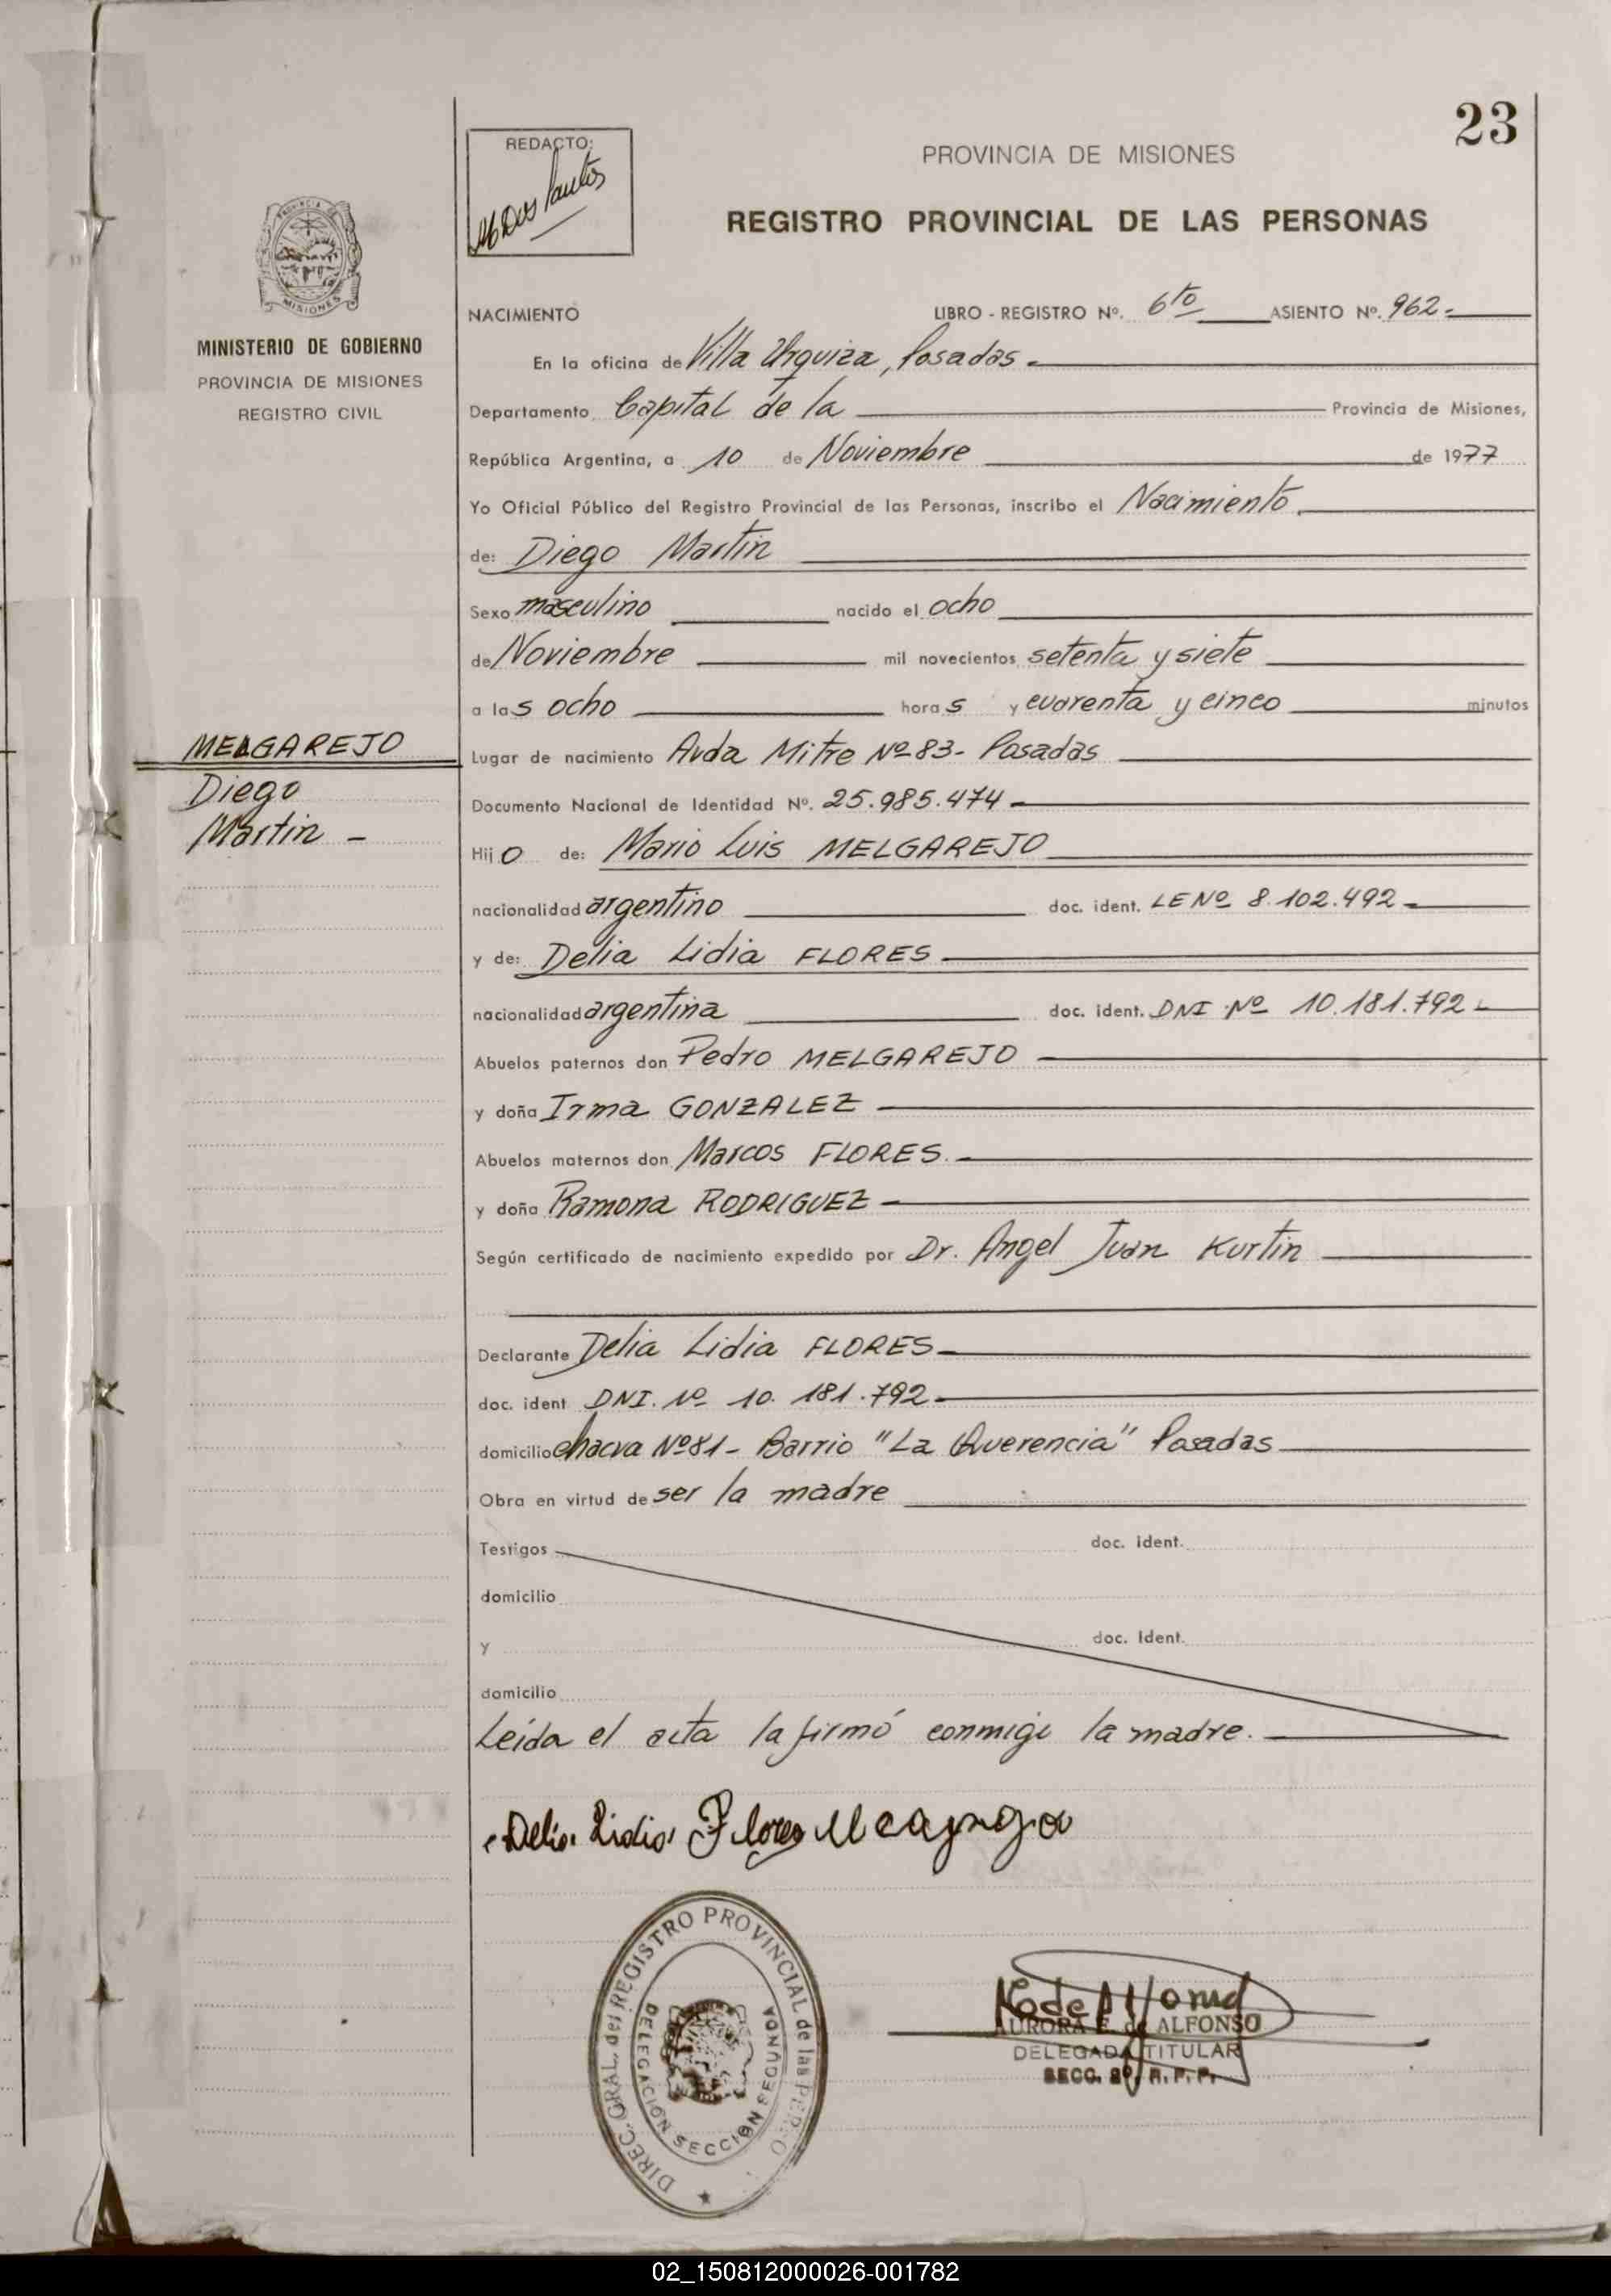 23
REDACTO:
M Dos Santos
PROVINCIA DE MISIONES
REGISTRO PROVINCIAL DE LAS PERSONAS
MISIONES
MINISTERIO DE GOBIERNO
PROVINCIA DE MISIONES
REGISTRO CIVIL
NACIMIENTO LIBRO - REGISTRO Nº. 6to ASIENTO Nº. 962.-
En la oficina de Villa Urquiza, Posadas.-
Departamento Capital de la Provincia de Misiones,
República Argentina, a 10 de Noviembre de 1977
Yo Oficial Público del Registro Provincial de las Personas, inscribo el Nacimiento.
de: Diego Martin
Sexo masculino nacido el ocho
de Noviembre mil novecientos setenta y siete
a las ocho horas y cuarenta y cinco minutos
MELGAREJO
Diego
Martin -
Lugar de nacimiento Avda Mitre Nº 83- Posadas
Documento Nacional de Identidad Nº. 25.985.474-
Hijo de: Mario Luis MELGAREJO
nacionalidad argentino doc. ident. LE Nº 8.102.492-
y de: Delia Lidia FLORES
nacionalidad argentina doc. ident. DNI Nº 10.181.792-
Abuelos paternos don Pedro MELGAREJO
y doña Irma GONZALEZ
Abuelos maternos don Marcos FLORES.-
y doña Ramona RODRIGUEZ-
Según certificado de nacimiento expedido por Dr. Angel Juan Kurtin
Declarante Delia Lidia FLORES-
doc. ident DNI. Nº 10.181.792-
domicilio chacra Nº 81- Barrio "La Querencia" Posadas
Obra en virtud de ser la madre
Testigos doc. ident.
domicilio
y doc. Ident.
domicilio
Leída el acta la firmó conmigo la madre.
Delia Lidia Flores
DIREC. GRAL. del REGISTRO PROVINCIAL de las
DELEGACION SECCION SEGUNDA
AURORA E. de ALFONSO
DELEGADA TITULAR
SECC. 2º. R. P. P.
02_150812000026-001782